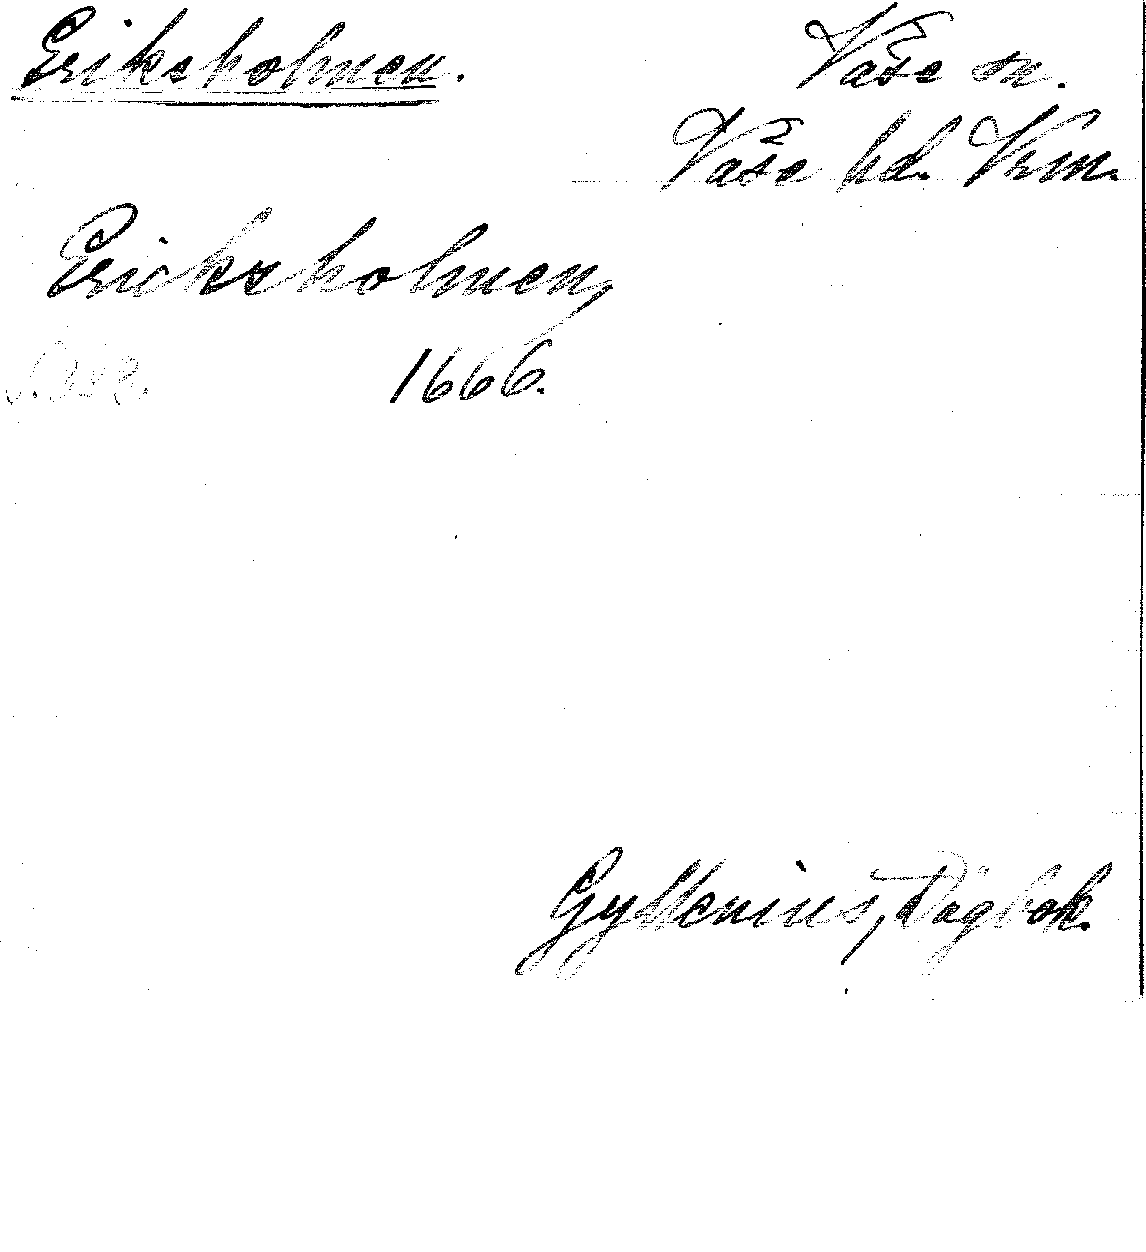 Eriksholmen.
Väse sn.
Väse hd. Vrm.
Erichsholmen,
1666.
Gyllenius, Dagbok.